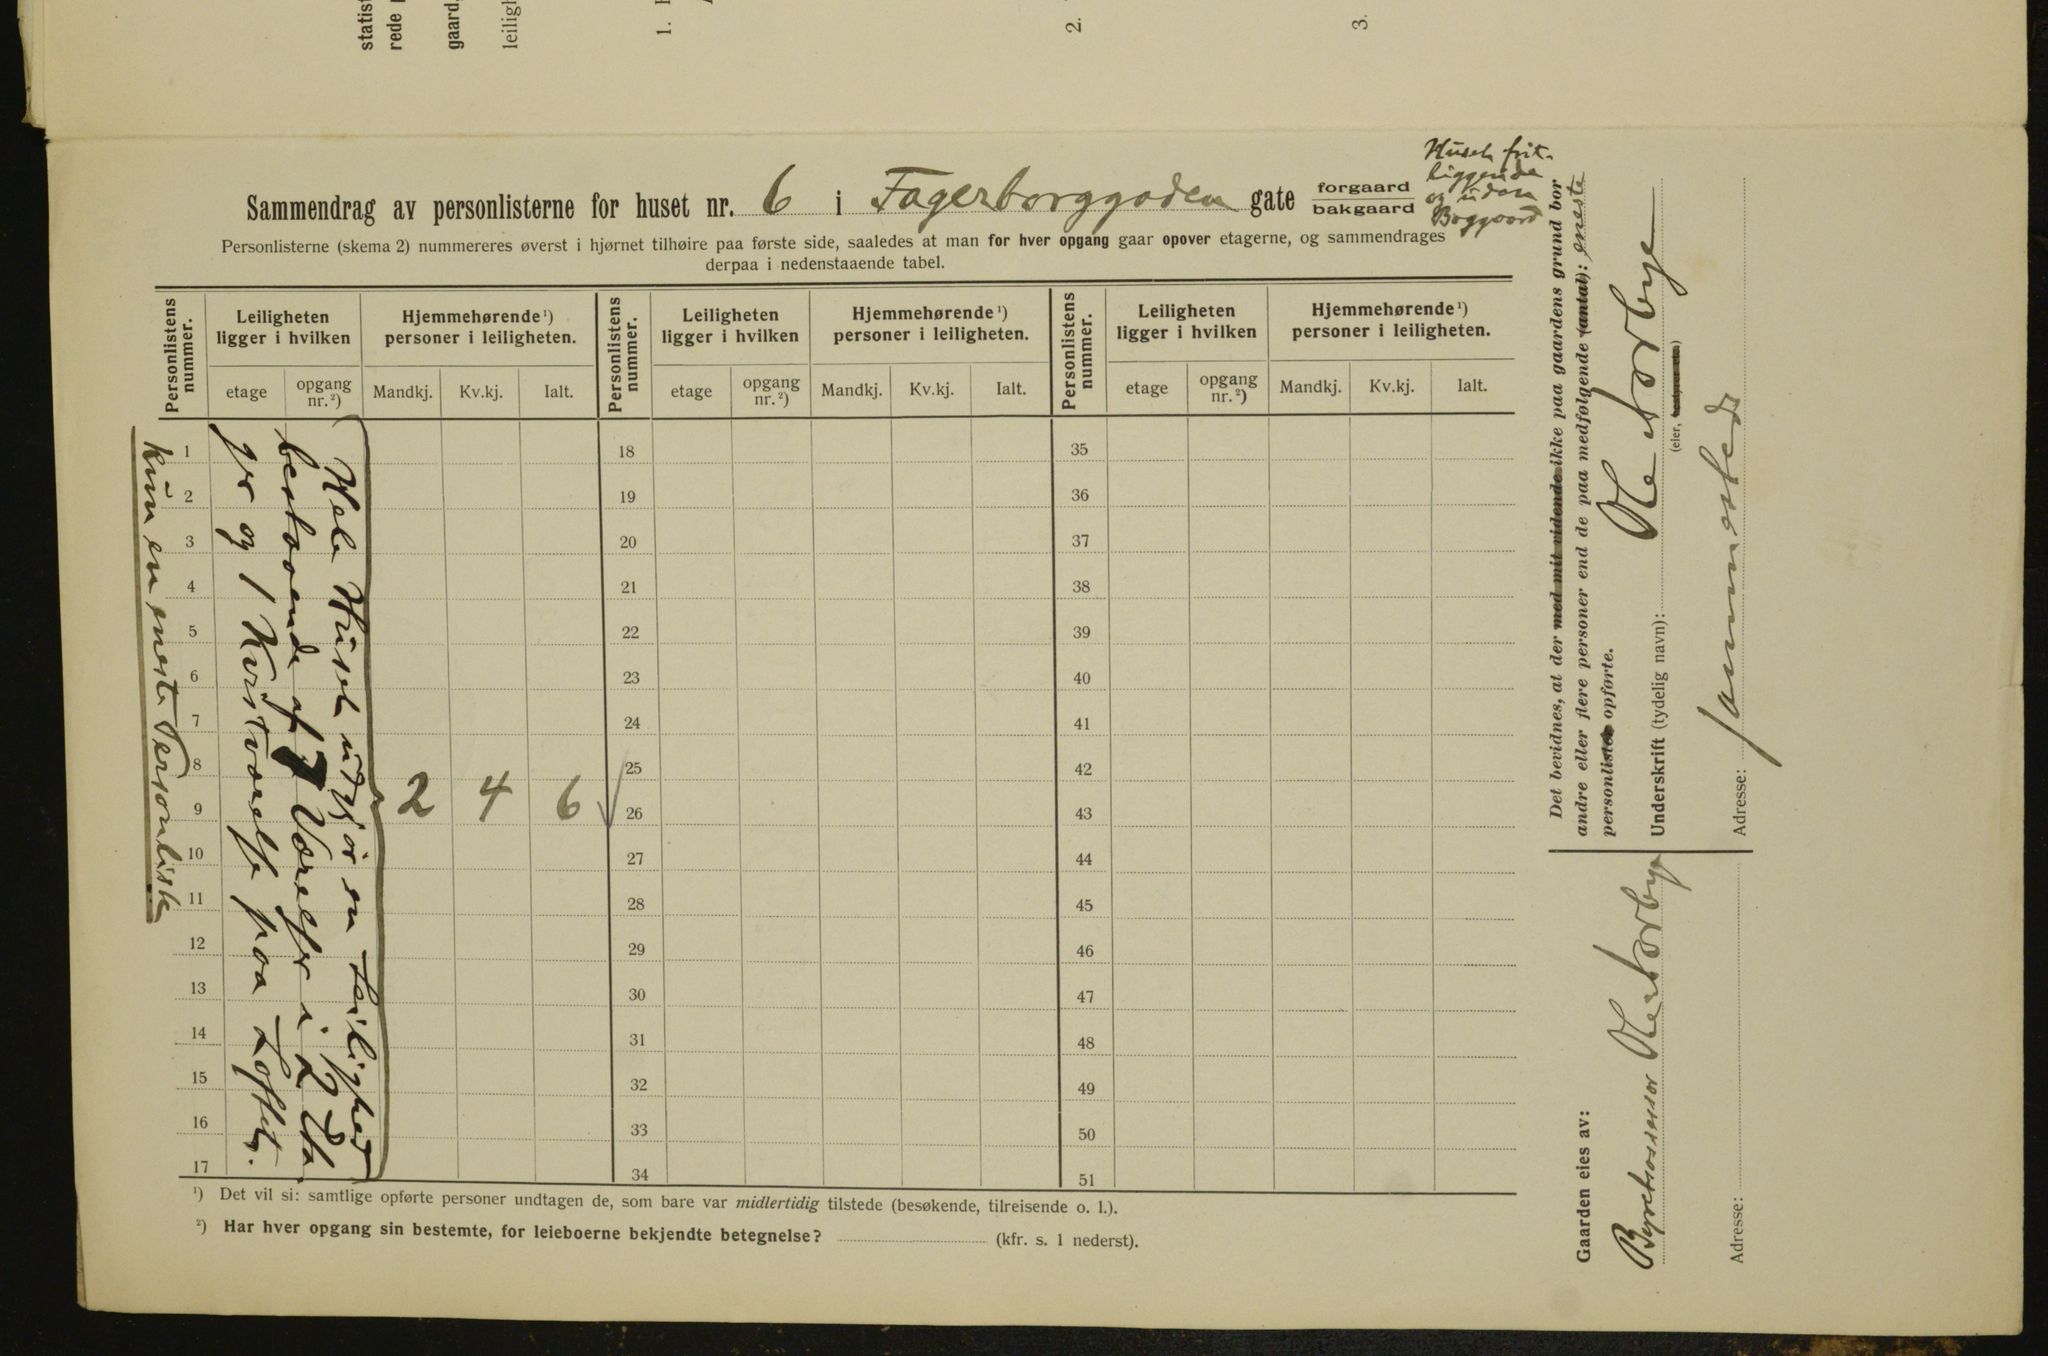 statist
rede
gaard,
leiligh
1.
2.
3.
Sammendrag av personlisterne for huset nr. 6 i Fagerborggaden gate forgaard
bakgaard
Huset frit-
liggende
og uden
Baggaard
Personlisterne (skema 2) nummereres øverst i hjørnet tilhøire paa første side, saaledes at man for hver opgang gaar opover etagerne, og sammendrages
derpaa i nedenstaaende tabel.
Personlistens nummer. Leiligheten ligger i hvilken Hjemmehørende ¹) personer i leiligheten. Personlistens nummer. Leiligheten ligger i hvilken Hjemmehørende ¹) personer i leiligheten. Personlistens nummer. Leiligheten ligger i hvilken Hjemmehørende ¹) personer i leiligheten.
etage opgang nr. ²) Mandkj. Kv.kj. Ialt. etage opgang nr. ²) Mandkj. Kv.kj. Ialt. etage opgang nr. ²) Mandkj. Kv.kj. Ialt.
1 18 35
2 19 36
3 20 37
4 21 38
5 22 39
6 23 40
7 24 41
8 25 42
9 2 4 6 26 43
10 27 44
11 28 45
12 29 46
13 30 47
14 31 48
15 32 49
16 33 50
17 34 51
Hele Huset udgjør en Leilighed
bestaaende af 7 Værelser i 2 Eta
ger og 1 Kvistværelse paa Loftet.
kun en eneste Personliste
¹) Det vil si: samtlige opførte personer undtagen de, som bare var midlertidig tilstede (besøkende, tilreisende o. l.).
²) Har hver opgang sin bestemte, for leieboerne bekjendte betegnelse? (kfr. s. 1 nederst).
Det bevidnes, at der med mit vidende ikke paa gaardens grund bor
andre eller flere personer end de paa medfølgende (antal): eneste
personlister opførte.
Underskrift (tydelig navn): Ole Norbye
(eier, bestyrer etc.)
Adresse: sammesteds
Gaarden eies av:
Byretsassessor Ole Norbye
Adresse: